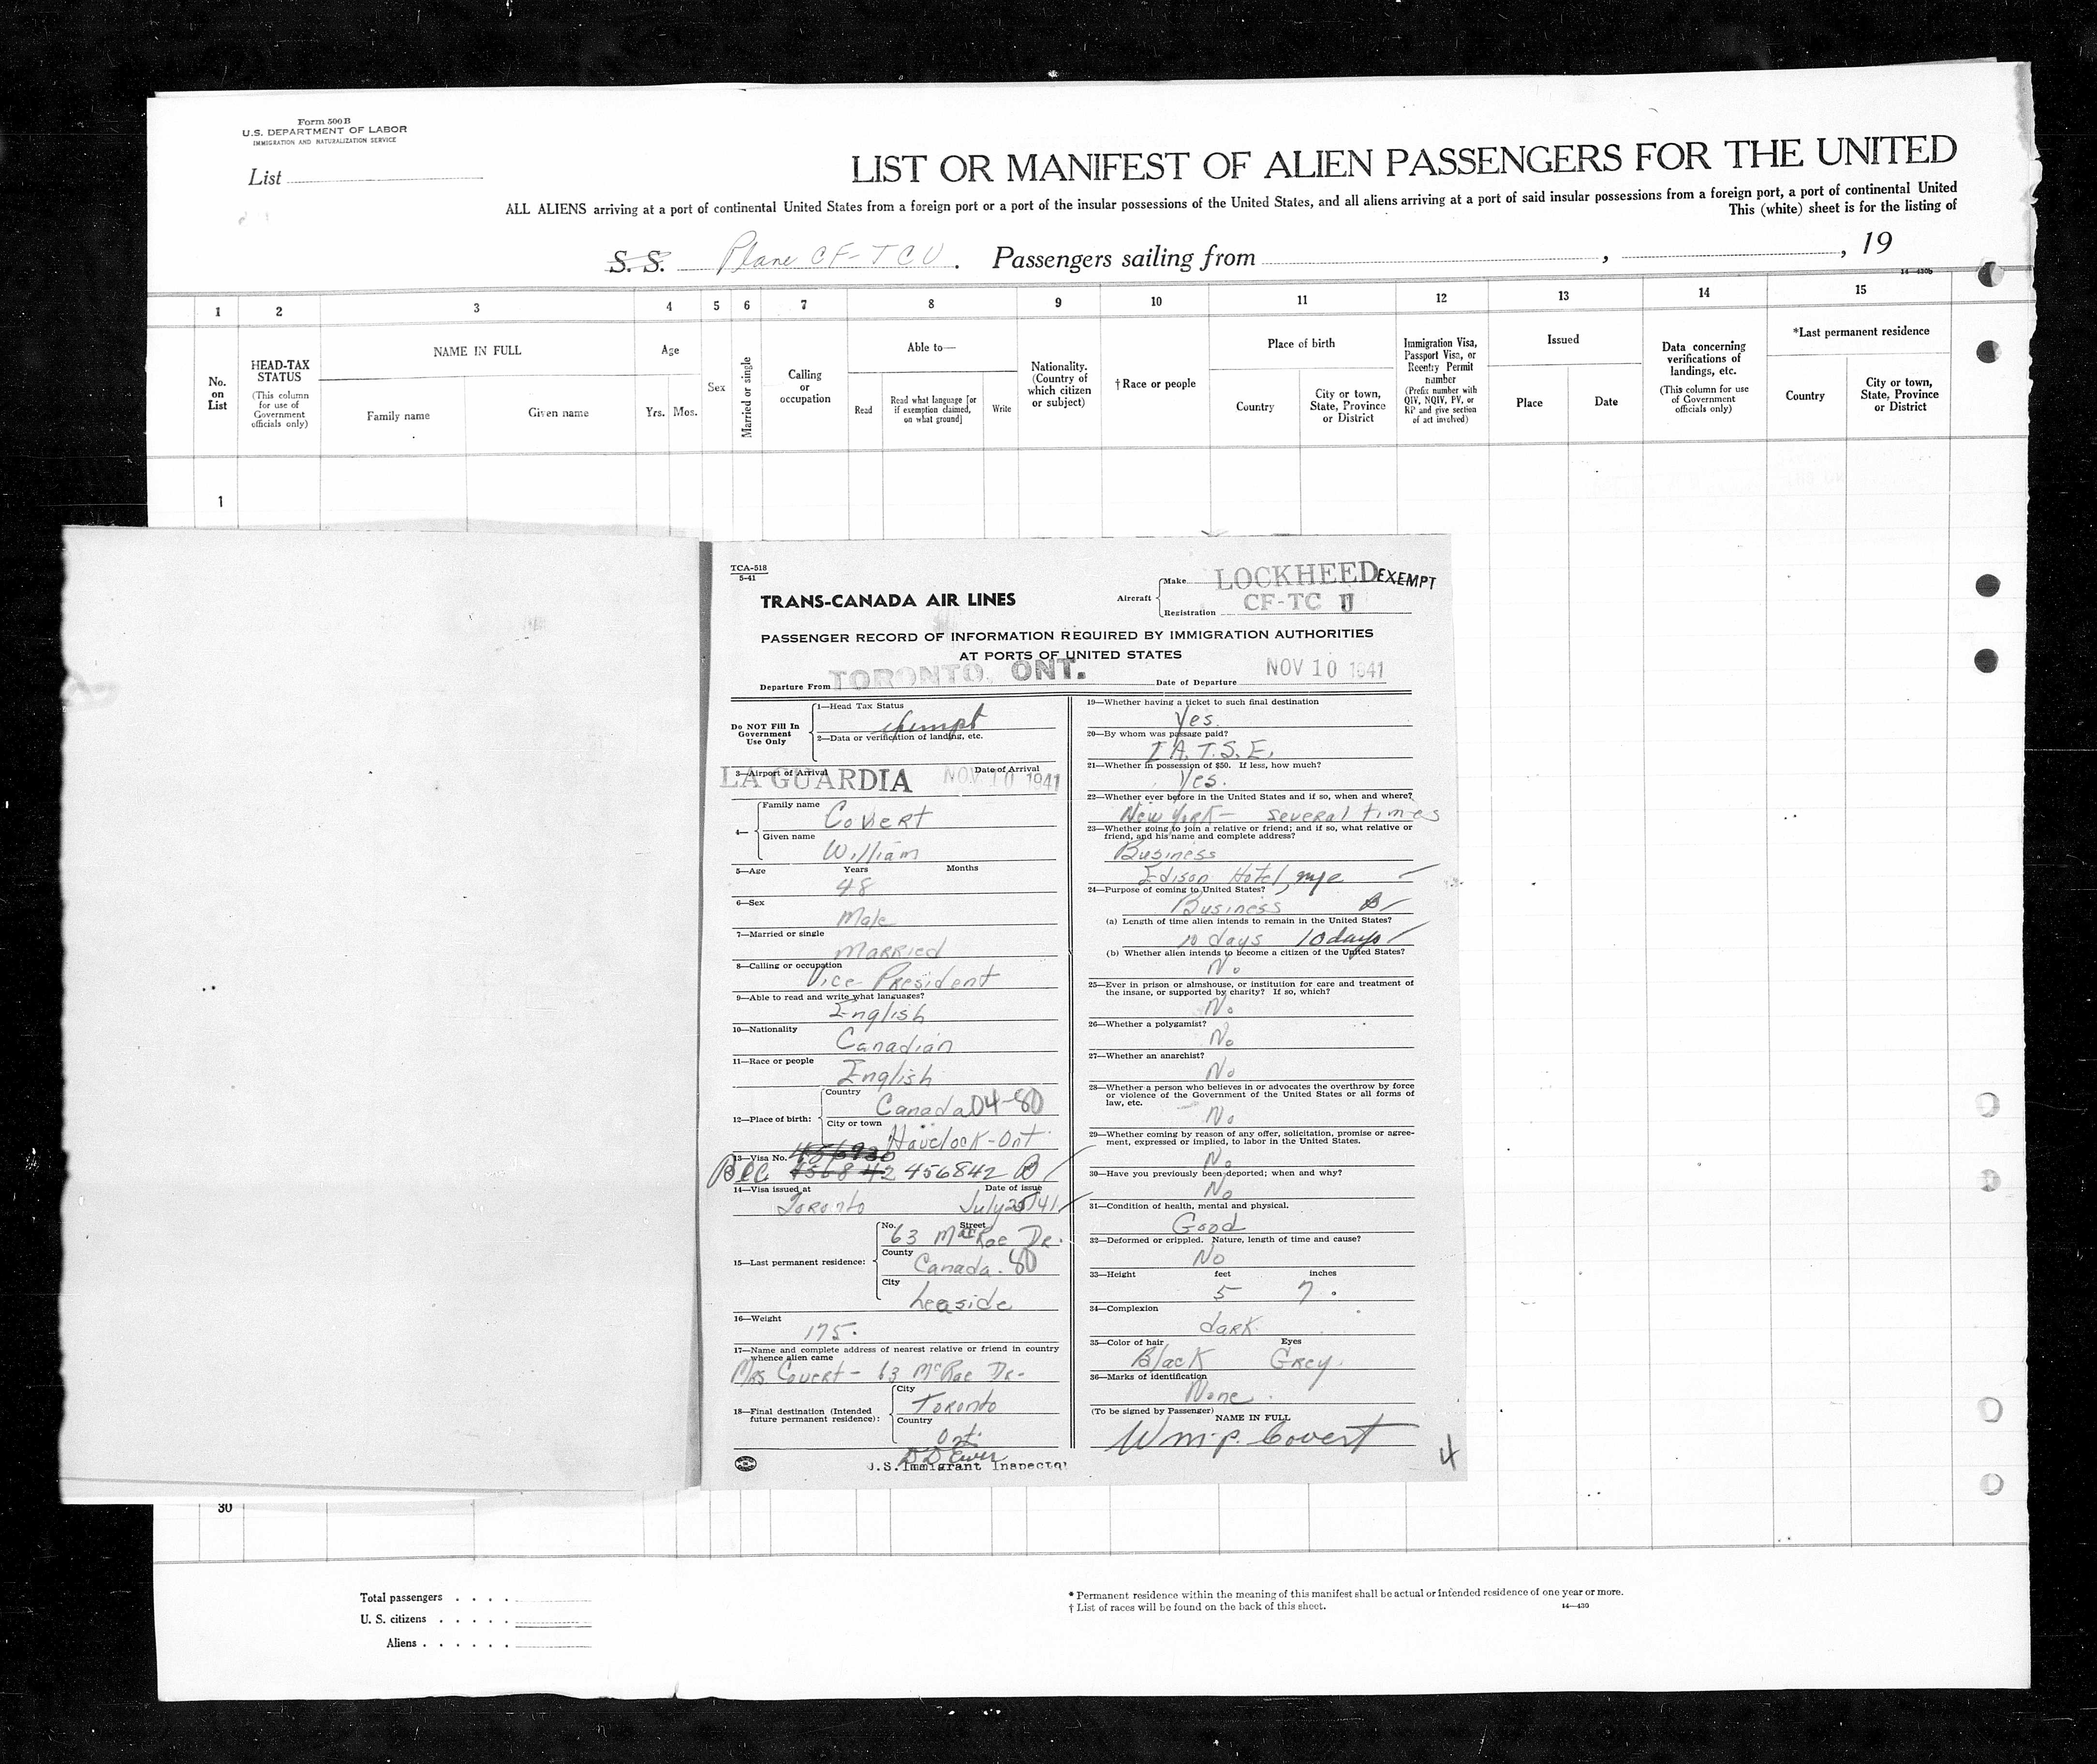 Form 500 B
U.S. DEPARTMENT OF LABOR
IMMIGRATION AND NATURALIZATION SERVICE
List
LIST OR MANIFEST OF ALIEN PASSENGERS FOR THE UNITED
ALL ALIENS arriving at a port of continental United States from a foreign port or a port of the insular possessions of the United States, and all aliens arriving at a port of said insular possessions from a foreign port, a port of continental United
This (white) sheet is for the listing of
S. S. Plane CF-TCU. Passengers sailing from , , 19
14—430b
1 2 3 4 5 6 7 8 9 10 11 12 13 14 15
No. on List
HEAD-TAX STATUS
(This column for use of Government officials only)
NAME IN FULL
Family name
Given name
Age
Yrs. Mos.
Sex
Married or single
Calling or occupation
Able to—
Read
Read what language [or if exemption claimed, on what ground]
Write
Nationality. (Country of which citizen or subject)
†Race or people
Place of birth
Country
City or town, State, Province or District
Immigration Visa, Passport Visa, or Reentry Permit number
(Prefix number with QIV, NQIV, PV, or RP and give section of act involved)
Issued
Place
Date
Data concerning verifications of landings, etc.
(This column for use of Government officials only)
*Last permanent residence
Country
City or town, State, Province or District
1
TCA-518
5-41
TRANS-CANADA AIR LINES
Aircraft
Make LOCKHEED EXEMPT
Registration CF-TC U
PASSENGER RECORD OF INFORMATION REQUIRED BY IMMIGRATION AUTHORITIES
AT PORTS OF UNITED STATES
Departure From TORONTO, ONT. Date of Departure NOV 10 1941
Do NOT Fill In Government Use Only
1—Head Tax Status
exempt
2—Data or verification of landing, etc.
3—Airport of Arrival Date of Arrival
LA GUARDIA NOV 10 1941
4—
Family name
Covert
Given name
William
5—Age Years Months
48
6—Sex
Male
7—Married or single
Married
8—Calling or occupation
Vice President
9—Able to read and write what languages?
English
10—Nationality
Canadian
11—Race or people
English
12—Place of birth:
Country
Canada 04-80
City or town
Havelock-Ont
13—Visa No.
456842 456842
14—Visa issued at Date of issue
Toronto July 25/41
15—Last permanent residence:
No. Street
63 MacRae Dr.
County
Canada. 80
City
Leaside
16—Weight
175.
17—Name and complete address of nearest relative or friend in country
whence alien came
Mrs Covert - 63 McRae Dr-
18—Final destination (Intended
future permanent residence):
City
Toronto
Country
Ont.
U.S. Immigrant Inspector
19—Whether having a ticket to such final destination
Yes.
20—By whom was passage paid?
I.A.T.S.E.
21—Whether in possession of $50. If less, how much?
Yes.
22—Whether ever before in the United States and if so, when and where?
New York - several times
23—Whether going to join a relative or friend; and if so, what relative or
friend, and his name and complete address?
Business
Edison Hotel, nyc
24—Purpose of coming to United States?
Business
(a) Length of time alien intends to remain in the United States?
10 days 10 days
(b) Whether alien intends to become a citizen of the United States?
No
25—Ever in prison or almshouse, or institution for care and treatment of
the insane, or supported by charity? If so, which?
No
26—Whether a polygamist?
No
27—Whether an anarchist?
No
28—Whether a person who believes in or advocates the overthrow by force
or violence of the Government of the United States or all forms of
law, etc.
No
29—Whether coming by reason of any offer, solicitation, promise or agree-
ment, expressed or implied, to labor in the United States.
No
30—Have you previously been deported; when and why?
No
31—Condition of health, mental and physical.
Good
32—Deformed or crippled. Nature, length of time and cause?
No
33—Height feet inches
5 7.
34—Complexion
dark.
35—Color of hair Eyes
Black Grey.
36—Marks of identification
None.
(To be signed by Passenger)
NAME IN FULL
Wm. P. Covert
4
30
Total passengers . . . .
U. S. citizens . . . . .
Aliens . . . . . .
* Permanent residence within the meaning of this manifest shall be actual or intended residence of one year or more.
† List of races will be found on the back of this sheet.
14—430